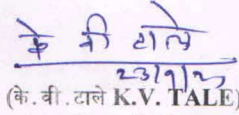 के वी टाले
23/9/25
(के. वी. टाले K.V. TALE)